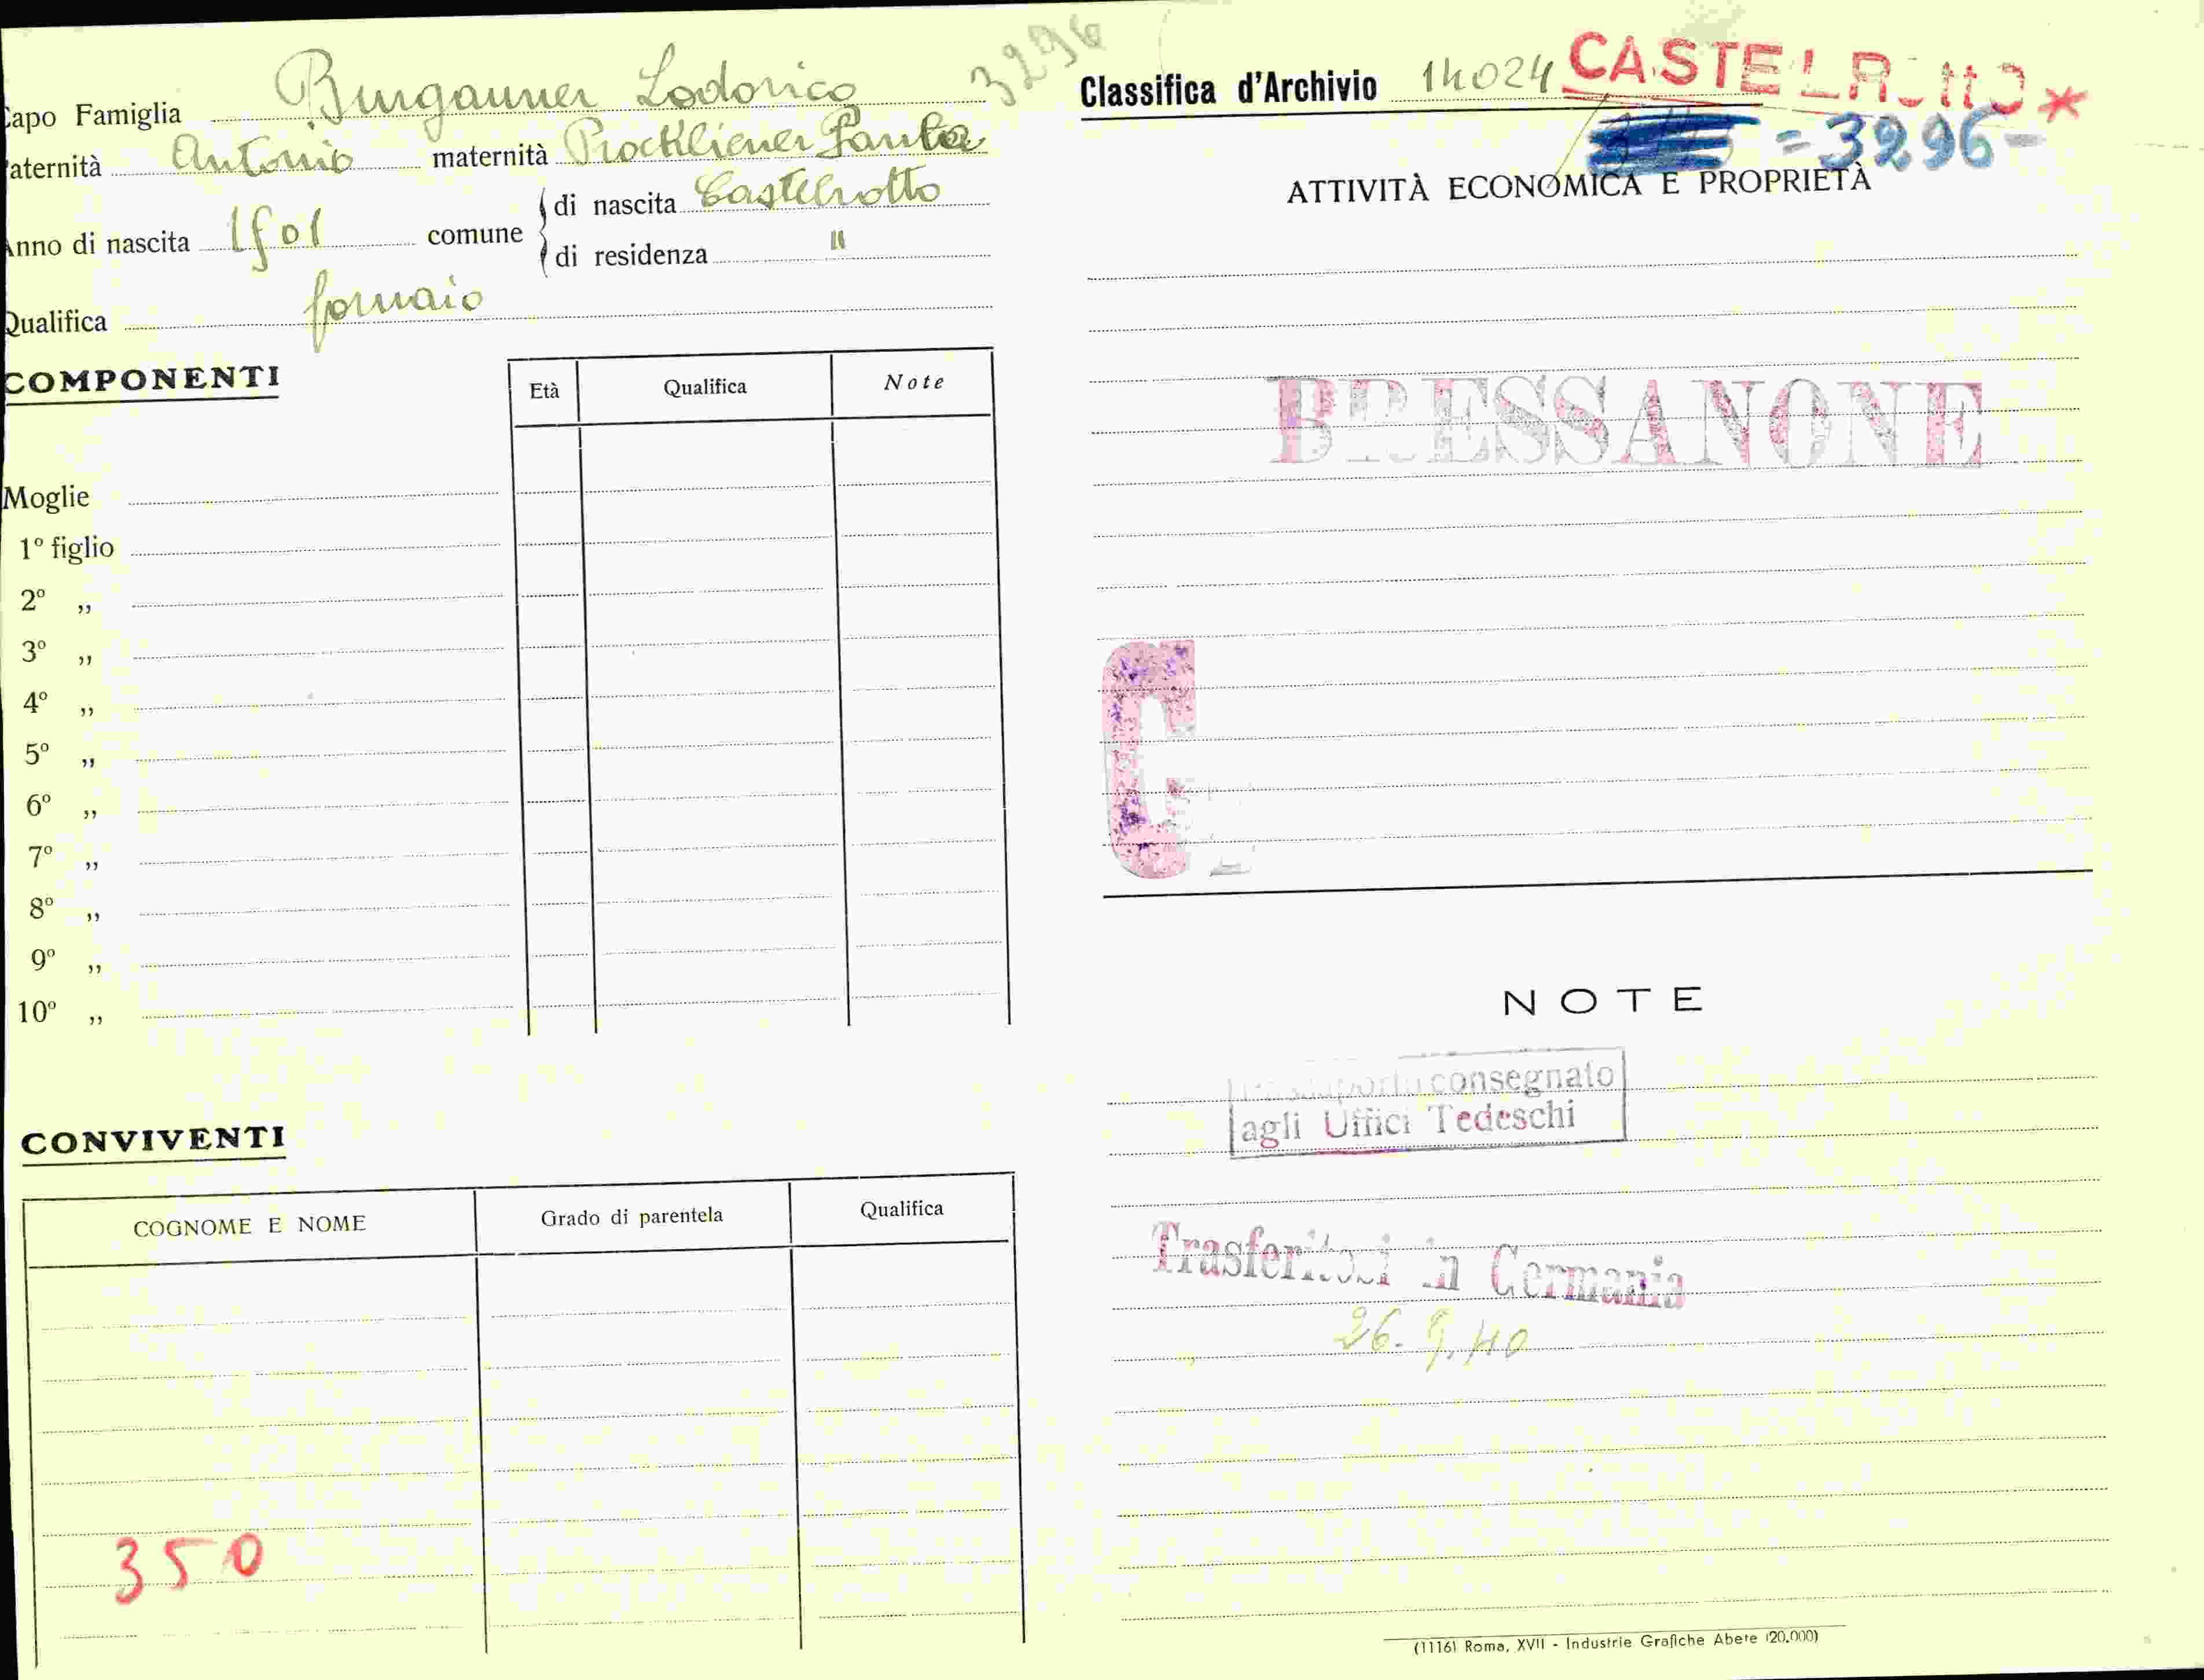 3296
Capo Famiglia Burgauner Lodovico
Paternità Antonio maternità Paula
Anno di nascita 1901 comune di nascita Castelrotto
di residenza "
Qualifica fornaio
COMPONENTI
Età Qualifica Note
Moglie
1º figlio
2º "
3º "
4º "
5º "
6º "
7º "
8º "
9º "
10º "
CONVIVENTI
COGNOME E NOME Grado di parentela Qualifica
350
Classifica d'Archivio 14024 CASTELROTTO *
= 3296 -
ATTIVITÀ ECONOMICA E PROPRIETÀ
BRESSANONE
C
NOTE
consegnato
agli Uffici Tedeschi
Trasferitosi in Germania
26.9.40
(1116) Roma, XVII - Industrie Grafiche Abete (20.000)